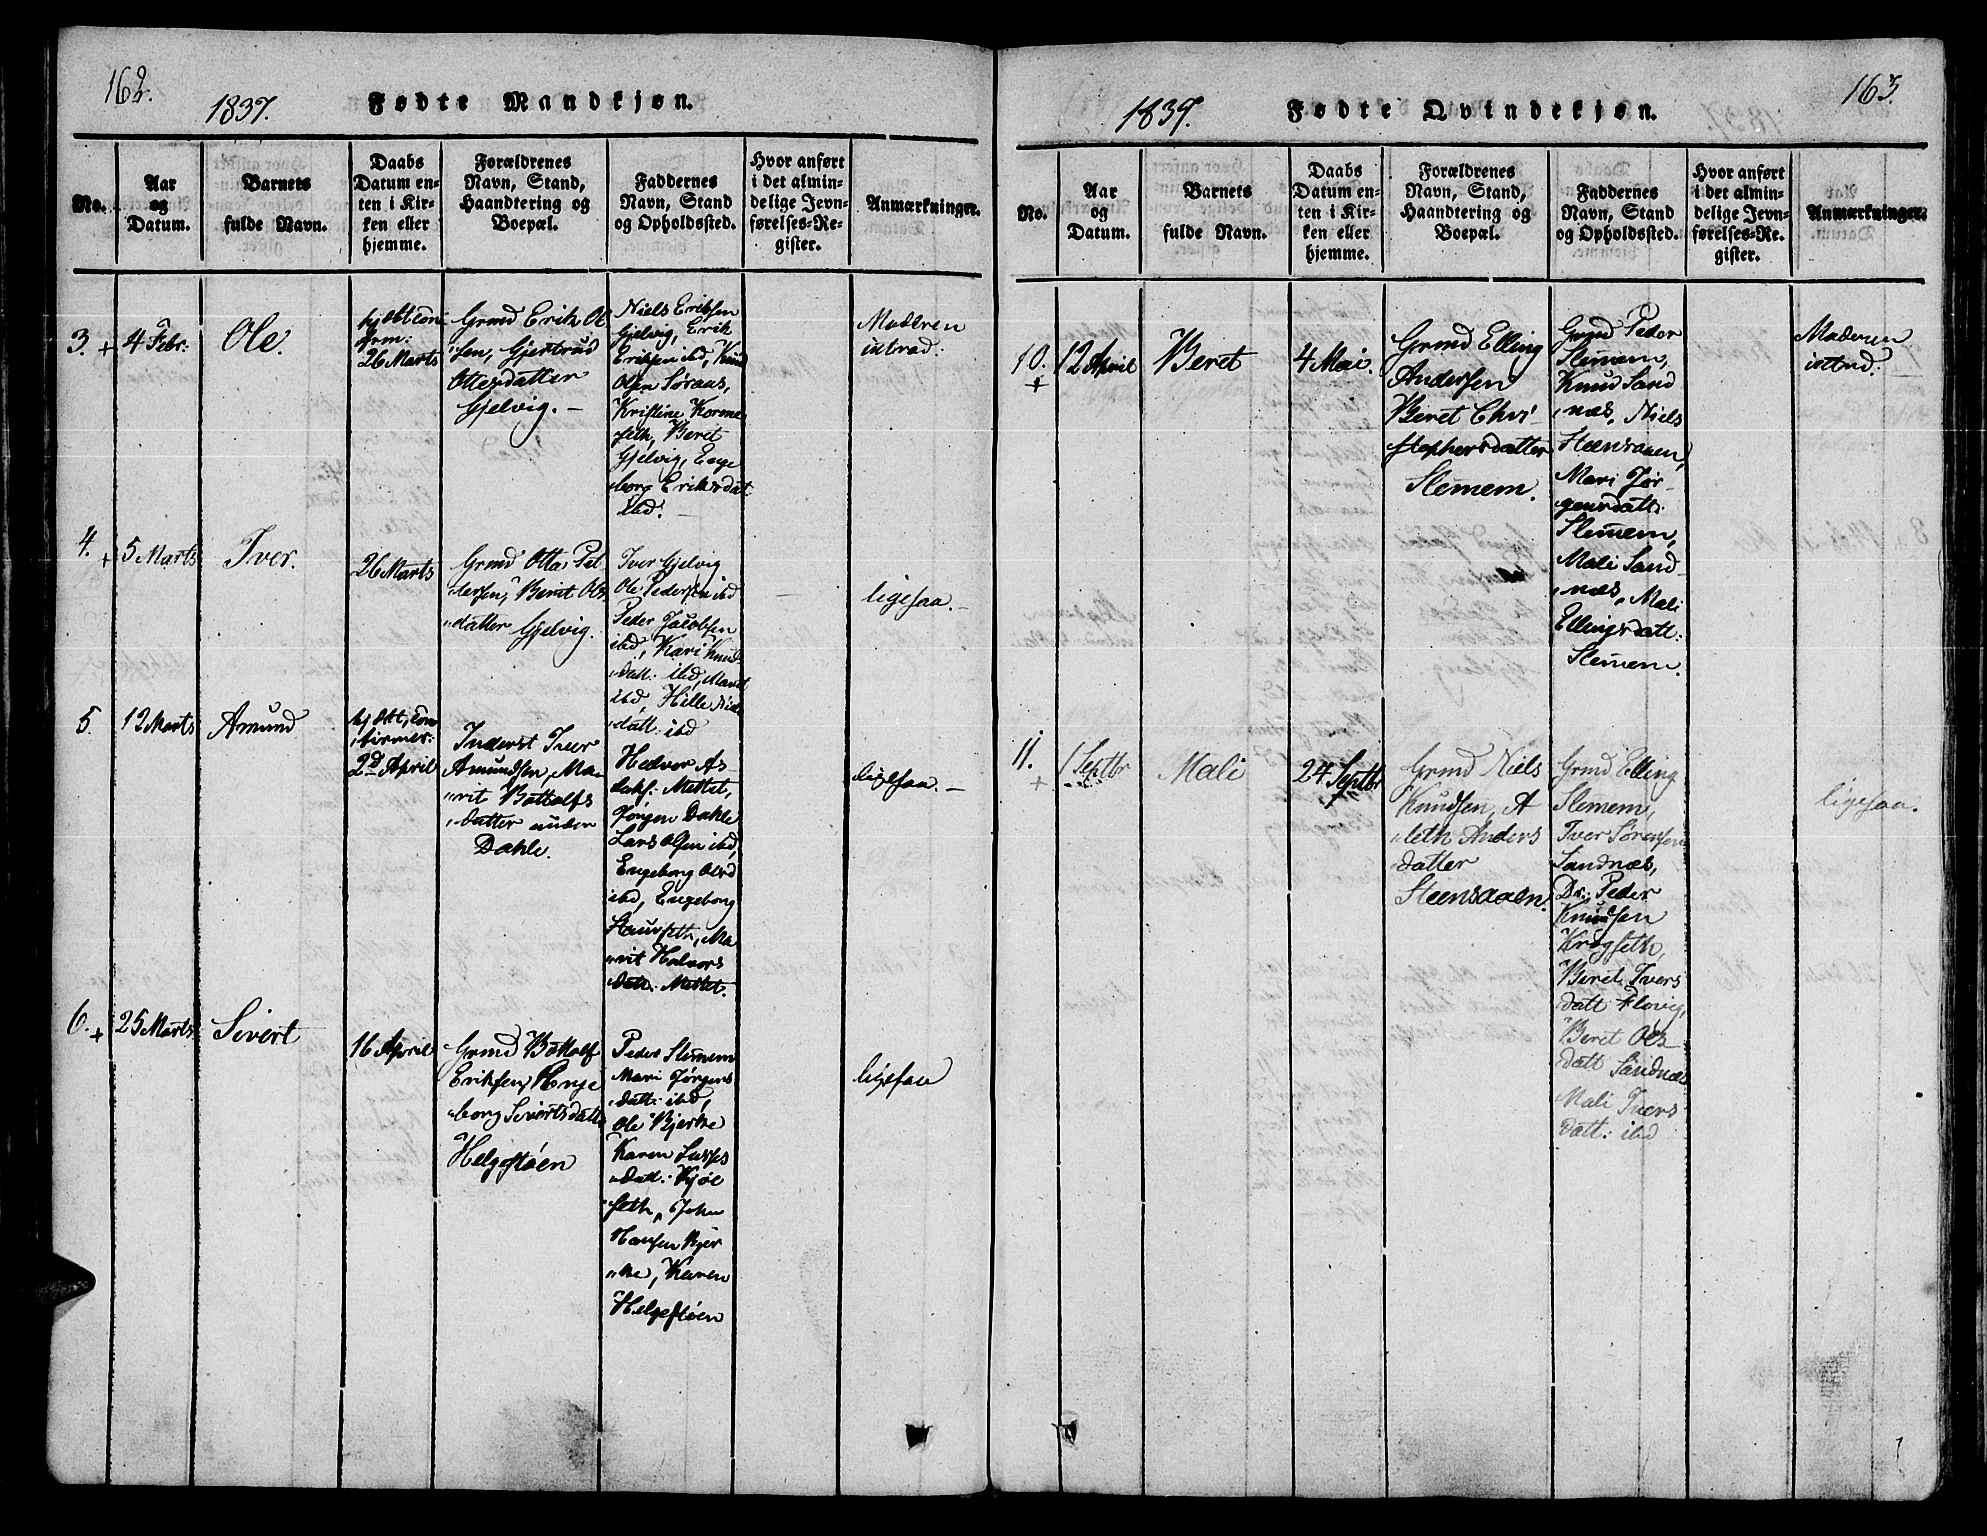 162.
1837. Fødte Mandkjøn.
No.
Aar
og
Datum.
Barnets
fulde Navn.
Daabs
Datum en-
ten i Kir-
ken eller
hjemme.
Forældrenes
Navn, Stand,
Haandtering og
Boepæl.
Faddernes
Navn, Stand
og Opholdssted.
Hvor anført
i det almin-
delige Jevn-
førelses-Re-
gister.
Anmærkninger.
3. + 4 Febr:
Ole.
26 Marts
Grmd Erik Ol
sen, Gjertrud
Ottersdatter
Gjelvig. –
Niels Eriksen
Gjelvig, Erik
Eriksen ibd, Knud
Olsen Søraas,
Kristine Korme
seth, Beret
Gjelvig, Enge
"borg Eriksdat
ibd.
Moderen
introd:
4. + 5 Marts
Iver.
26 Marts
Grmd Otta Pet
tersen, Berit Ols
"datter Gjelvig.
Iver Gjelvig
Ole Pedersen ibd
Peder Jacobsen
ibd, Kari Knud
"datt: ibd, Marit
ibd, Hille
datt: ibd
ligesaa. –
5. 12 Marts
Amund
2d April
Inderst Iver
Amundsen, Ma-
"rit Bottolfs
"datter under
Dahle.
Halvor As
laks: Mettet,
Jørgen Dahle
Lars Olsen ibd,
Engeborg Olsd
ibd, Engeborg
Staurseth, Ma
"rit Halvors
datt: Mettet.
ligesaa. –
6. + 25 Marts
Sivert
16 April
Grmd Bottolf
Eriksen, Enge
"borg Sivertsdatt
Helgestøen
Peder Slemem
Mari Jørgens
"datt: ibd,
Ole Bjerke
Karen
"datt: Kjøl
seth, John
Hansen Bjer
"ke, Karen
Helgestøen
ligesaa
163.
1837. Fødte Qvindekjøn.
No.
Aar
og
Datum.
Barnets
fulde Navn.
Daabs
Datum en-
ten i Kir-
ken eller
hjemme.
Forældrenes
Navn, Stand,
Haandtering og
Boepæl.
Faddernes
Navn, Stand
og Opholdssted.
Hvor anført
i det almin-
delige Jevn-
førelses-Re-
gister.
Anmærkninger.
10. + 12 April
Beret
4 Mai
Grmd Elling
Andersen
Beret Chri
stophersdatter
Slemem.
Grmd Peder
Slemem,
Knud Sand
"næs, Niels
Steensaaen,
Mari Jør
gensdatt:
Slemem,
Mali Sand
"næs, Mali
Ellingsdatt:
Slemem.
Moderen
introd:
11. + 1 Septbr
Mali
24 Septbr
Grmd Niels
Knudsen, A
"leth Anders
datter
Steensaaen.
Grmd Elling
Slemem,
Iver Sørensen
Sandnæs,
Dr: Peder
Knudsen
Krogseth,
Beret Ivers
datt Flovig,
Beret Ols
datt Sandnæs
Mali Ivers
datt: ibd
ligesaa.